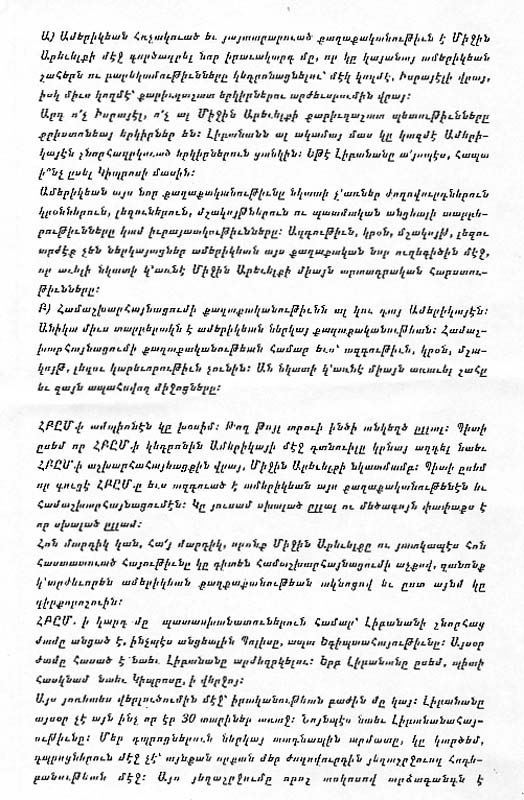 Ա) Ամերիկեան Հռչակուած եւ յայտարարուած քաղաքականութիւն է Միջին
Արեւելքի մէջ գործադրել նոր իրաւակարգ մը, որ կը կայանայ ամերիկեան
շահերն ու բարեկամութիւնները կեդրոնացնելու՝ մէկ կողմէ, Իսրայէլի վրայ,
իսկ միւս կողմէ՝ քարիւղաշատ երկիրներու արժեւորումին վրայ։
Արդ ո՛չ Իսրայէլ, ո՛չ ալ Միջին Արեւելքի քարիւղաշատ պետութիւնները
քրիստոնեայ երկիրներ են։ Լիբանանն ալ ակամայ մաս կը կազմէ Ամերի-
կայէն շնորհազրկուած երկիրներուն ցանկին։ Եթէ Լիբանանը ա՛յսպէս, հապա
ի՞նչ ըսել Կիպրոսի մասին։
Ամերիկեան այս նոր քաղաքականութիւնը նկատի չ՚առներ ժողովուրդներուն
կրօններուն, լեզուներուն, մշակոյթներուն ու պատմական անցեալի տարբե-
րութիւնները կամ իւրայատկութիւնները։ Ազգութիւն, կրօն, մշակոյթ, լեզու
արժէք չեն ներկայացներ ամերիկեան այս քաղաքական նոր ուղեգիծին մէջ,
որ աւելի նկատի կ՚առնէ Միջին Արեւելքի միայն արտադրական հարստու-
թիւնները։
Բ) Համաշխարհայնացումի քաղաքականութիւնն ալ կու գայ Ամերիկայէն։
Անիկա միւս տարբերակն է ամերիկեան ներկայ քաղաքականութեան։ Համաշ-
խարհայնացումի քաղաքականութեան համար եւս՝ ազգութիւն, կրօն, մշա-
կոյթ, լեզու կարեւորութիւն չունին։ Ան նկատի կ՚առնէ միայն առաւել շահը
եւ զայն ապահովող միջոցները։

ՀԲԸՄ-ի ամպիոնէն կը խօսիմ։ Թող թոյլ տրուի ինծի անկեղծ ըլլալ։ Պիտի
ըսեմ որ ՀԲԸՄ-ի կեդրոնին Ամերիկայի մէջ գտնուիլը կրնայ ազդել նաեւ
ՀԲԸՄ-ի աշխարհահայեացքին վրայ, Միջին Արեւելքի նկատմամբ։ Պիտի ըսեմ
որ գուցէ ՀԲԸՄ-ը եւս ազդուած է ամերիկեան այս քաղաքականութենէն եւ
համաշխարհայնացումէն։ Կը յուսամ սխալած ըլլալ ու մեծագոյն փափաքս է
որ սխալած ըլլամ։
Հոն մարդիկ կան, Հա՛յ մարդիկ, որոնք Միջին Արեւելքը ու յատկապէս հոն
հաստատուած Հայութիւնը կը դիտեն համաշխարհայնացումի աչքով, զանոնք
կ՚արժեւորեն ամերիկեան քաղքաքանութեան ակնոցով եւ ըստ այնմ կը
դիրքորոշուին։
ՀԲԸՄ. ի կարգ մը պատասխանատուներուն համար՝ Լիբանանի շնորհաց
ժամը անցած է, ինչպէս անցեալին Պոլիսը, ապա Եգիպտահայութիւնը։ Այսօր
ժամը հասած է նաեւ Լիբանանը արժեզրկելու։ Երբ Լիբանանը ըսեմ, պիտի
հասկնամ նաեւ Կիպրոսը, ի վերջոյ։
Այս յոռետես վերլուծումին մէջ՝ իրականութեան բաժին մը կայ։ Լիբանանը
այսօր չէ այն ինչ որ էր 30 տարիներ առաջ։ Նոյնպէս նաեւ Լիբանանահայ-
ութիւնը։ Մեր դպրոցներուն ներկայ տագնապին արմատը, կը կարծեմ,
դպրոցներուն մէջ չէ՝ այնքան որքան մեր ժողովուրդին յեղաշրջուող հոգե-
բանութեան մէջ։ Այս յեղաշրջումը որոշ առումով արձագանգն է